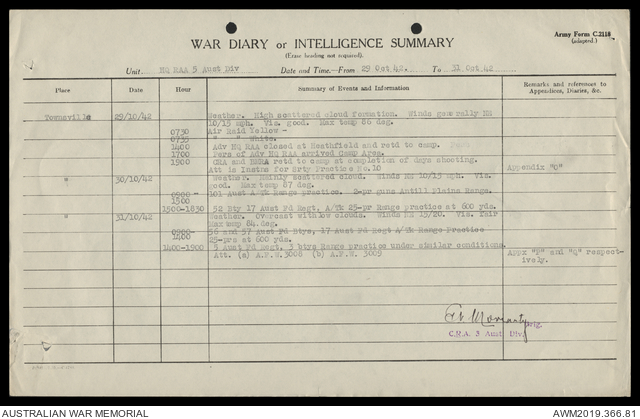 Army Form C.2118
(adapted.)
WAR DIARY or INTELLIGENCE SUMMARY
(Erase heading not required).
Unit HQ RAA 5 Aust Div Date and Time.—From 29 Oct 42. To 31 Oct 42
Place Date Hour Summary of Events and Information Remarks and references to Appendices, Diaries, &c.
Townsville 29/10/42 Weather. High scattered cloud formation. Winds generally NE
10/15 mph. Vis. good. Max temp 86 deg.
0730 Air Raid Yellow -
0735 " " White.
1400 Adv HQ RAA closed at Heathfield and retd to camp.
1700 Pers of Adv HQ RAA arrived Camp Area.
1900 CRA and retd to camp at completion of days shooting.
Att is Instns for Arty Practice No.10 Appendix "O"
" 30/10/42 Weather. Mainly scattered cloud. Winds NE 10/15 mph. vis.
good. Max temp 87 deg.
0900-1500 101 Aust A/Tk Range practice. 2-pr guns Antill Plains Range.
1500-1830 52 Bty 17 Aust Fd Regt, A/Tk 25-pr Range practice at 600 yds.
" 31/10/42 Weather. Overcast with low clouds. Winds NE 15/20. Vis. fair
Max temp 84 deg.
0900-1400 56 and 57 Aust Fd Btys, 17 Aust Fd Regt A/Tk Range Practice
25-prs at 600 yds.
1400-1900 5 Aust Fd Regt, 3 btys Range practice under similar conditions.
Att. (a) A.F.W.3008 (b) A.F.W. 3009 Appx "P" and "Q" respect-
ively.
Brig.
C.R.A. 5 Aust Div.
AUSTRALIAN WAR MEMORIAL
AWM2019.366.81